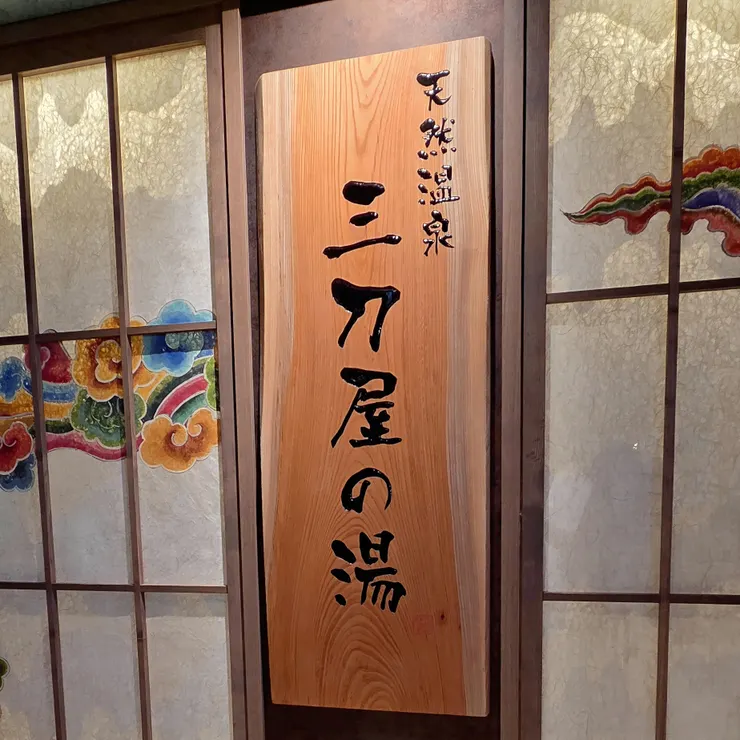 天然温泉
三刀屋の湯